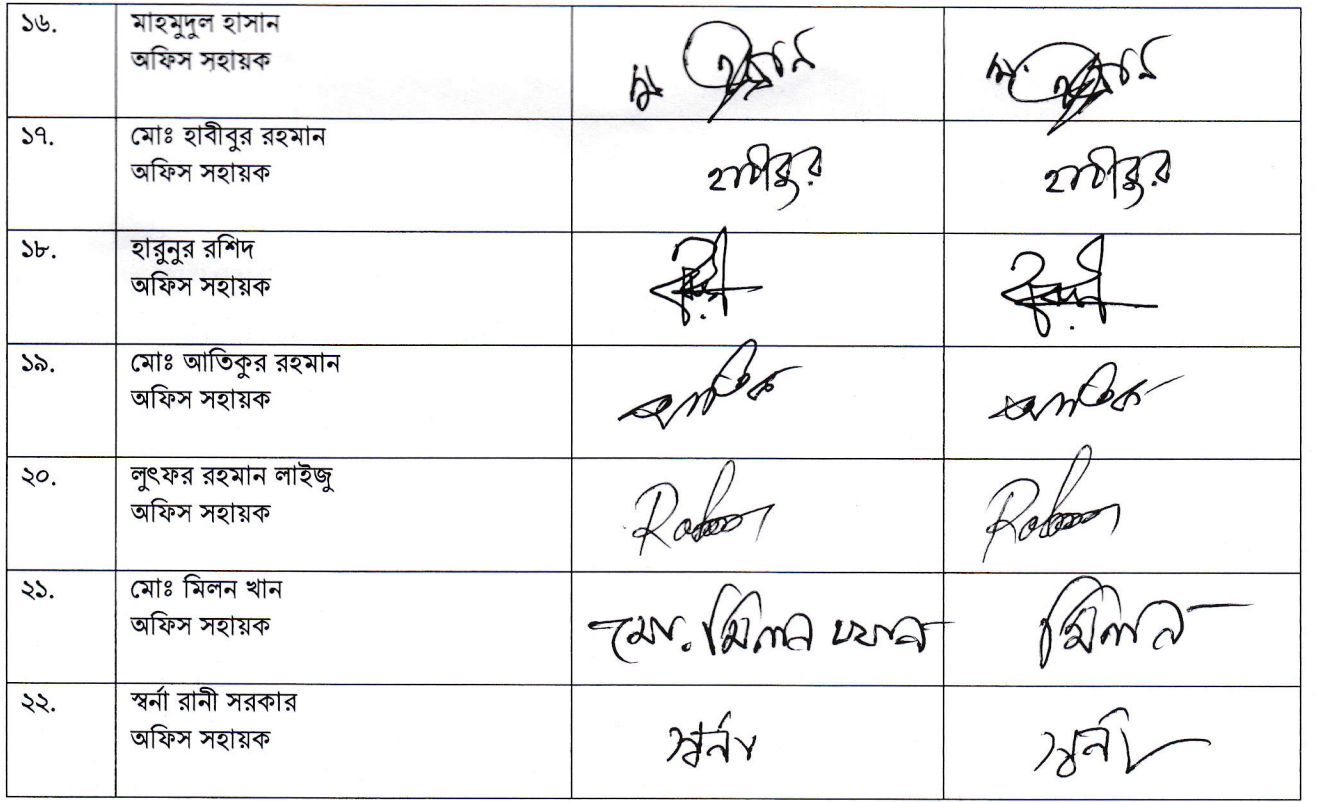 ১৬.
মাহমুদুল হাসান
অফিস সহায়ক
১৭.
মোঃ হাবীবুর রহমান
অফিস সহায়ক
হাবীবুর
হাবীবুর
১৮.
হারুনুর রশিদ
অফিস সহায়ক
১৯.
মোঃ আতিকুর রহমান
অফিস সহায়ক
আতিক
আতিক
২০.
লুৎফর রহমান লাইজু
অফিস সহায়ক
২১.
মোঃ মিলন খান
অফিস সহায়ক
মো. মিলন খান
মিলন
২২.
স্বর্না রানী সরকার
অফিস সহায়ক
স্বর্না
স্বর্না